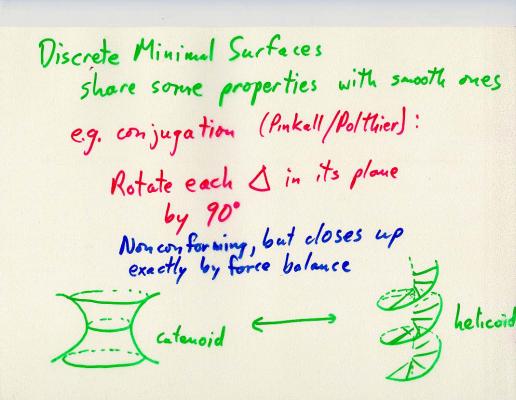 Discrete Minimal Surfaces
share some properties with smooth ones
e.g. conjugation (Pinkall/Polthier):
Rotate each Δ in its plane
by 90°
Nonconforming, but closes up
exactly by force balance
catenoid
helicoid